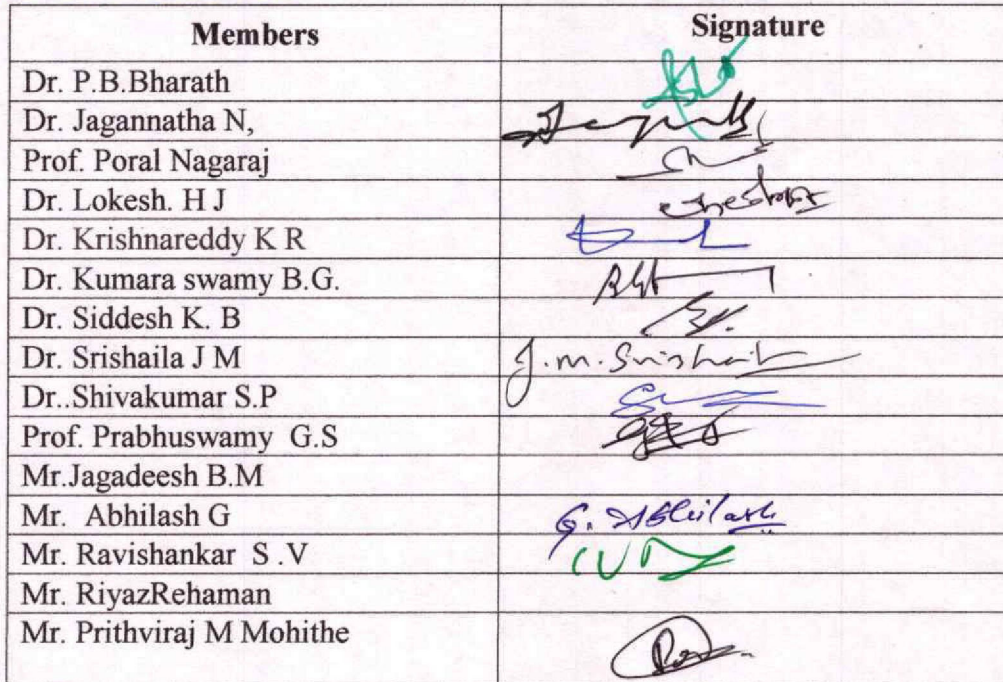 Members Signature
Dr. P.B.Bharath
Dr. Jagannatha N,
Prof. Poral Nagaraj
Dr. Lokesh. H J
Dr. Krishnareddy K R
Dr. Kumara swamy B.G.
Dr. Siddesh K. B
Dr. Srishaila J M J.m.Srishaila
Dr..Shivakumar S.P
Prof. Prabhuswamy G.S
Mr.Jagadeesh B.M
Mr. Abhilash G G. Abhilash
Mr. Ravishankar S .V
Mr. RiyazRehaman
Mr. Prithviraj M Mohithe